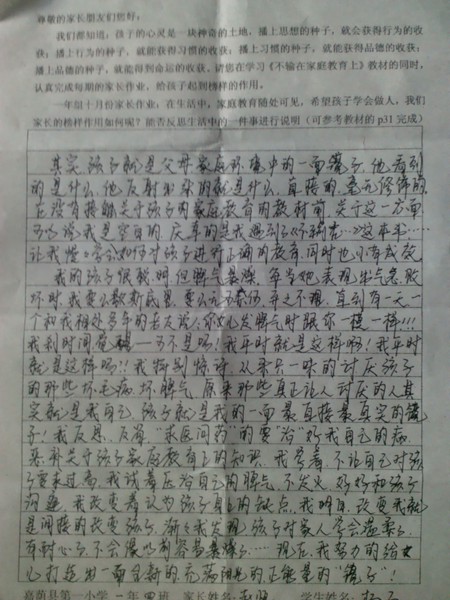 尊敬的家长朋友们您好：
我们都知道：孩子的心灵是一块神奇的土地，播上思想的种子，就会获得行为的收
获；播上行为的种子，就能获得习惯的收获；播上习惯的种子，就能获得品德的收获；
播上品德的种子，就能得到命运的收获。请您在学习《不输在家庭教育上》教材的同时，
认真完成每期的家长作业，给孩子起到榜样的作用。
一年级十月份家长作业，在生活中，家庭教育随处可见，希望孩子学会做人，我们
家长的榜样作用如何呢？能否反思生活中的一件事进行说明（可参考教材的 p31 完成）
其实，孩子就是父母家庭环境中的一面镜子，他看到
的是什么，他反射出来的就是什么，直接的，毫无修饰的
在没有接触关于孩子的家庭教育的教材前，关于这一方面
可以说我是空白的，庆幸的是我遇到了《不输在…》这本书…
让我慢慢学会如何对孩子进行正确的教育，同时也小有成效
我的孩子很聪明但脾气暴躁，每当她表现出气急败
坏时，我要么歇斯底里，要么 置之不理，直到有一天一
个和我相处多年的老友说：你女儿发脾气时跟你一模一样!!!
我刹时间 可不是吗！我平时就是这样啊！我平时
就是这样啊!! 我特别惊讶，从来只一味的讨厌孩子
的那些坏毛病，坏脾气，原来那些真正让人讨厌的人其
实就是我自己，孩子就是我的一面最直接最真实的镜
子！我反思，反省，“求医问药”的要“治”好我自己的病，
恶补关于孩子家庭教育上的知识，我学着，不让自己对孩
子要求过高，我试着压治自己的脾气，不发火，好好和孩子
沟通，我改变着认为孩子身上的缺点，我明白，改变我就
是间接的改变孩子，渐渐我发现，孩子对家人学会温柔了
有耐心了，不会 暴躁了…… 现在，我努力的给女
儿打造出一面全新的，充满阳光的正能量的“镜子”！
嘉荫县第一小学 一年 班 家长姓名： 学生姓名：